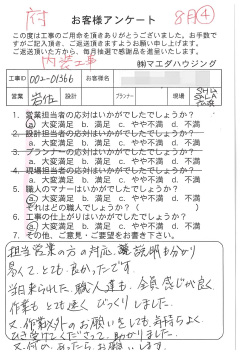 村
8月④
お客様アンケート
内装工事
この度は工事のご用命を頂きありがとうございます。お手数で
すがご記入頂き、ご返送頂きますようお願い申し上げます。
ご返送頂いた方から、毎月抽選で感謝品を進呈いたします。
㈱マエダハウジング
工事ID 002-01366 お客様名
営業 岩佐 設計 プランナー 現場
1. 営業担当者の応対はいかがでしたでしょうか？
ⓐ 大変満足 b. 満足 c. やや不満 d. 不満
2. 設計担当者の応対はいかがでしたでしょうか？
a. 大変満足 b. 満足 c. やや不満 d. 不満
3. プランナーの応対はいかがでしたでしょうか？
a. 大変満足 b. 満足 c. やや不満 d. 不満
4. 現場担当者の応対はいかがでしたでしょうか？
a. 大変満足 b. 満足 c. やや不満 d. 不満
5. 職人のマナーはいかがでしたでしょうか？
ⓐ 大変満足 b. 満足 c. やや不満 d. 不満
それはどの職人でしょうか？( )
6. 工事の仕上がりはいかがでしたでしょうか？
ⓐ 大変満足 b. 満足 c. やや不満 d. 不満
7. その他、ご意見・ご要望をお書き下さい。
担当営業の方の対応、説明も分かり
易くて、とても良かったです。
当日来られた職人達も、全員感じが良く
作業もとても速く びっくりしました。
又、作業以外のお願いをしても、気持ちよく
ひき受けてくださって、助かりました。
又、何かあったらお願いします。